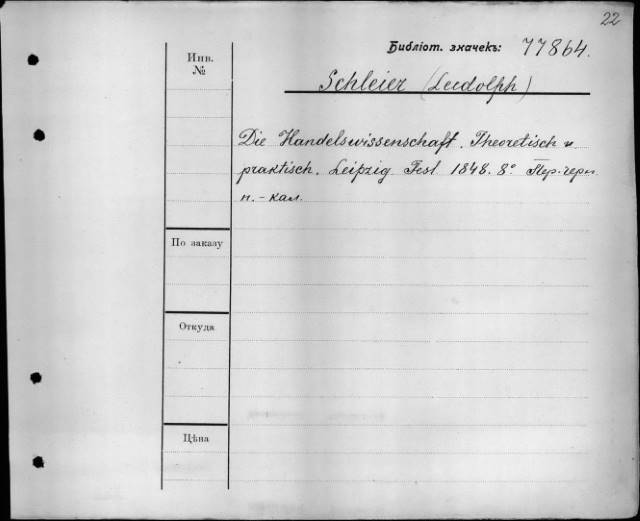 22
Библіот. значекъ: 77864.
Инв.
№
Schleier (Ludolph)
Die Handelswissenschaft. Theoretisch u
praktisch. Leipzig Fest 1848. 8° Пер. черн.
п. - кал.
По заказу
Откуда
Цѣна